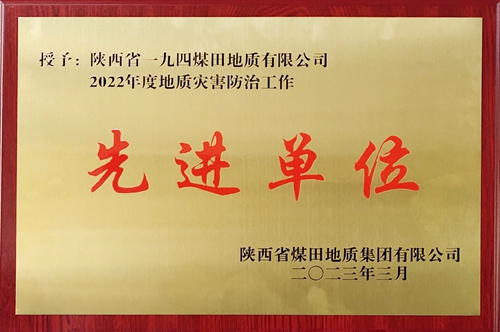 授予：陕西省一九四煤田地质有限公司
2022年度地质灾害防治工作
先进单位
陕西省煤田地质集团有限公司
二〇二三年三月